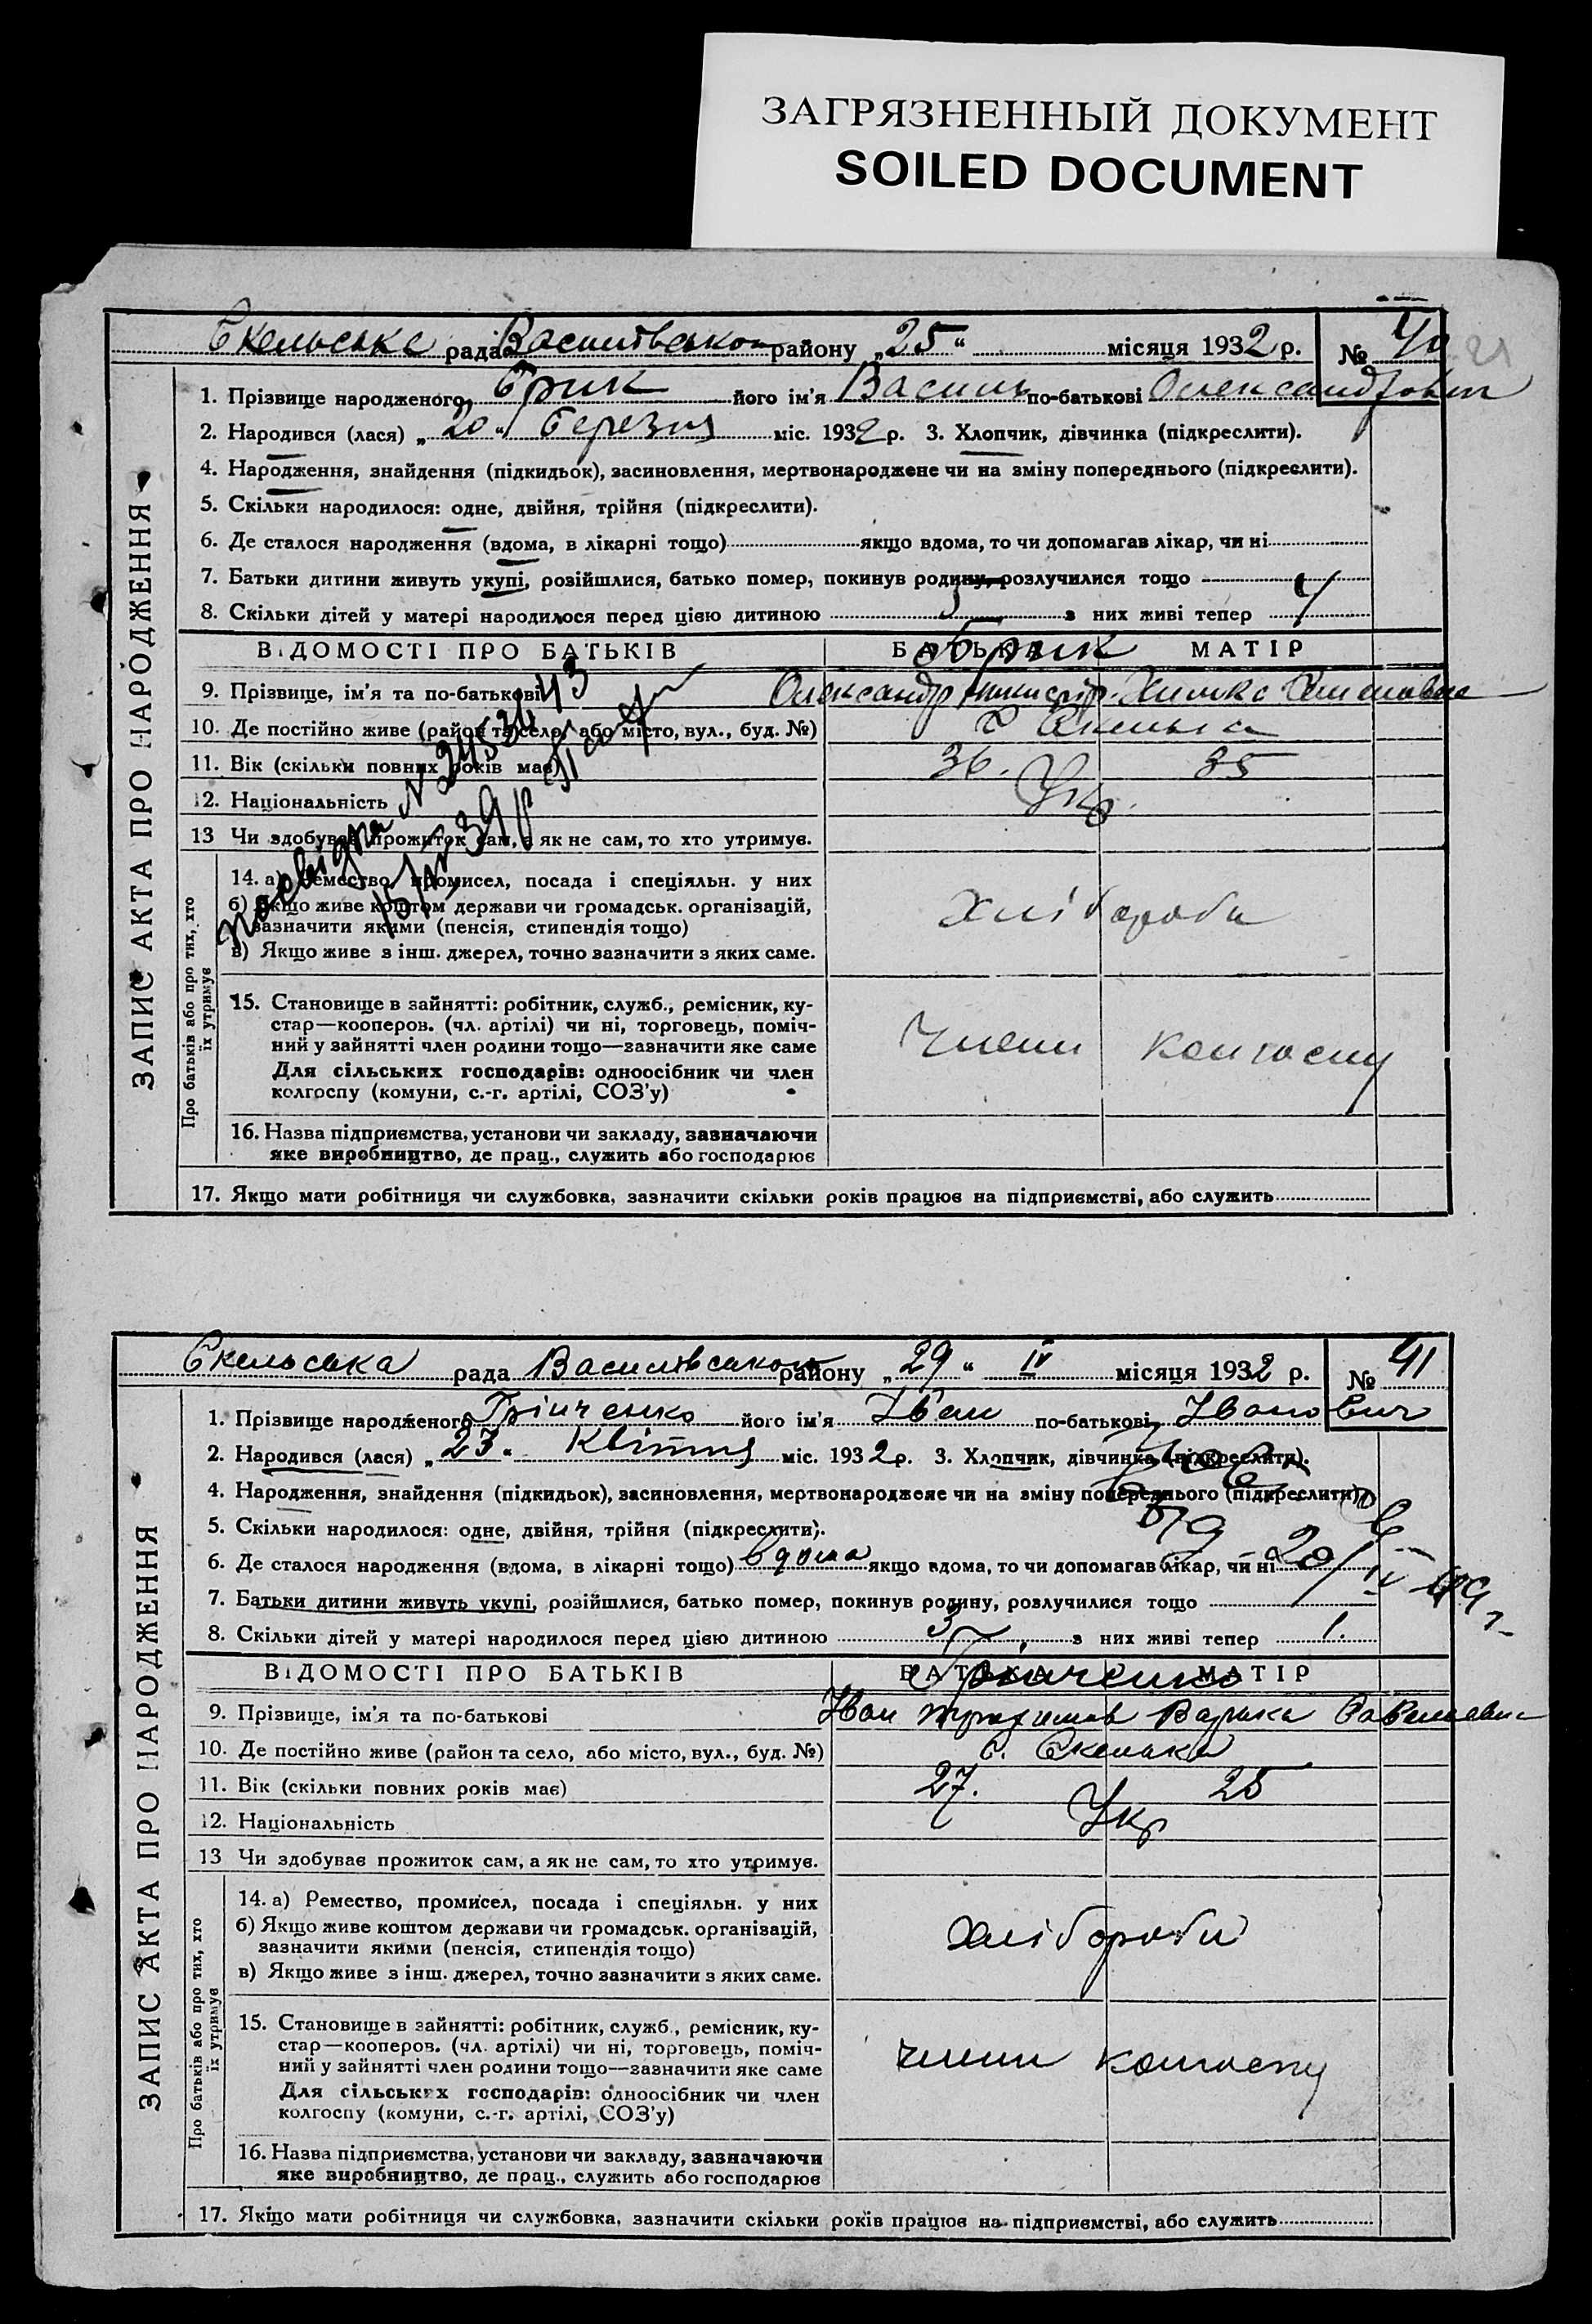 ЗАГРЯЗНЕННЫЙ ДОКУМЕНТ
SOILED DOCUMENT
Скельське рада Василівського району „25“ місяця 1932 р. № 40
21
ЗАПИС АКТА ПРО НАРОДЖЕННЯ
1. Прізвище народженого Брик його ім'я Василь по-батькові Олександрович
2. Народився (лася) „20“ березня міс. 1932 р. 3. Хлопчик, дівчинка (підкреслити).
4. Народження, знайдення (підкидьок), засиновлення, мертвонароджене чи на зміну попереднього (підкреслити).
5. Скільки народилося: одне, двійня, трійня (підкреслити).
6. Де сталося народження (вдома, в лікарні тощо) якщо вдома, то чи допомагав лікар, чи ні
7. Батьки дитини живуть укупі, розійшлися, батько помер, покинув родину, розлучилися тощо
8. Скільки дітей у матері народилося перед цією дитиною 5 з них живі тепер 4
ВІДОМОСТІ ПРО БАТЬКІВ БАТЬКО МАТІР
Брик
9. Прізвище, ім'я та по-батькові Олександр
10. Де постійно живе (район та село, або місто, вул., буд. №) с Скелька
11. Вік (скільки повних років має) 36. 35
12. Національність Укр.
13 Чи здобуває прожиток сам, а як не сам, то хто утримує.
Про батьків або про тих, хто їх утримує
14. а) Ремество, промисел, посада і спеціяльн. у них
б) Якщо живе коштом держави чи громадськ. організацій,
зазначити якими (пенсія, стипендія тощо)
в) Якщо живе з інш. джерел, точно зазначити з яких саме.
Хлібороби
15. Становище в зайнятті: робітник, служб., ремісник, ку-
стар—кооперов. (чл. артілі) чи ні, торговець, поміч-
ний у зайнятті член родини тощо—зазначити яке саме
Для сільських господарів: одноосібник чи член
колгоспу (комуни, с.-г. артілі, СОЗ'у)
Члени колгоспу
16. Назва підприємства, установи чи закладу, зазначаючи
яке виробництво, де прац., служить або господарює
17. Якщо мати робітниця чи службовка, зазначити скільки років працює на підприємстві, або служить
Скельська рада Василівського району „29“ IV місяця 1932 р. № 41
ЗАПИС АКТА ПРО НАРОДЖЕННЯ
1. Прізвище народженого Грінченко його ім'я Іван по-батькові Іванович
2. Народився (лася) „23“ Квітня міс. 1932 р. 3. Хлопчик, дівчинка (підкреслити).
4. Народження, знайдення (підкидьок), засиновлення, мертвонароджене чи на зміну попереднього (підкреслити)
5. Скільки народилося: одне, двійня, трійня (підкреслити).
6. Де сталося народження (вдома, в лікарні тощо) вдома якщо вдома, то чи допомагав лікар, чи ні
20/IV-49 г.
7. Батьки дитини живуть укупі, розійшлися, батько помер, покинув родину, розлучилися тощо
8. Скільки дітей у матері народилося перед цією дитиною 3 з них живі тепер 1.
ВІДОМОСТІ ПРО БАТЬКІВ БАТЬКО МАТІР
Грінченко
9. Прізвище, ім'я та по-батькові Іван Варька Савелєвна
10. Де постійно живе (район та село, або місто, вул., буд. №) с. Скелька
11. Вік (скільки повних років має) 27. 25
12. Національність Укр
13 Чи здобуває прожиток сам, а як не сам, то хто утримує.
Про батьків або про тих, хто їх утримує
14. а) Ремество, промисел, посада і спеціяльн. у них
б) Якщо живе коштом держави чи громадськ. організацій,
зазначити якими (пенсія, стипендія тощо)
в) Якщо живе з інш. джерел, точно зазначити з яких саме.
Хлібороби
15. Становище в зайнятті: робітник, служб., ремісник, ку-
стар—кооперов. (чл. артілі) чи ні, торговець, поміч-
ний у зайнятті член родини тощо—зазначити яке саме
Для сільських господарів: одноосібник чи член
колгоспу (комуни, с.-г. артілі, СОЗ'у)
члени колгоспу
16. Назва підприємства, установи чи закладу, зазначаючи
яке виробництво, де прац., служить або господарює
17. Якщо мати робітниця чи службовка, зазначити скільки років працює на підприємстві, або служить